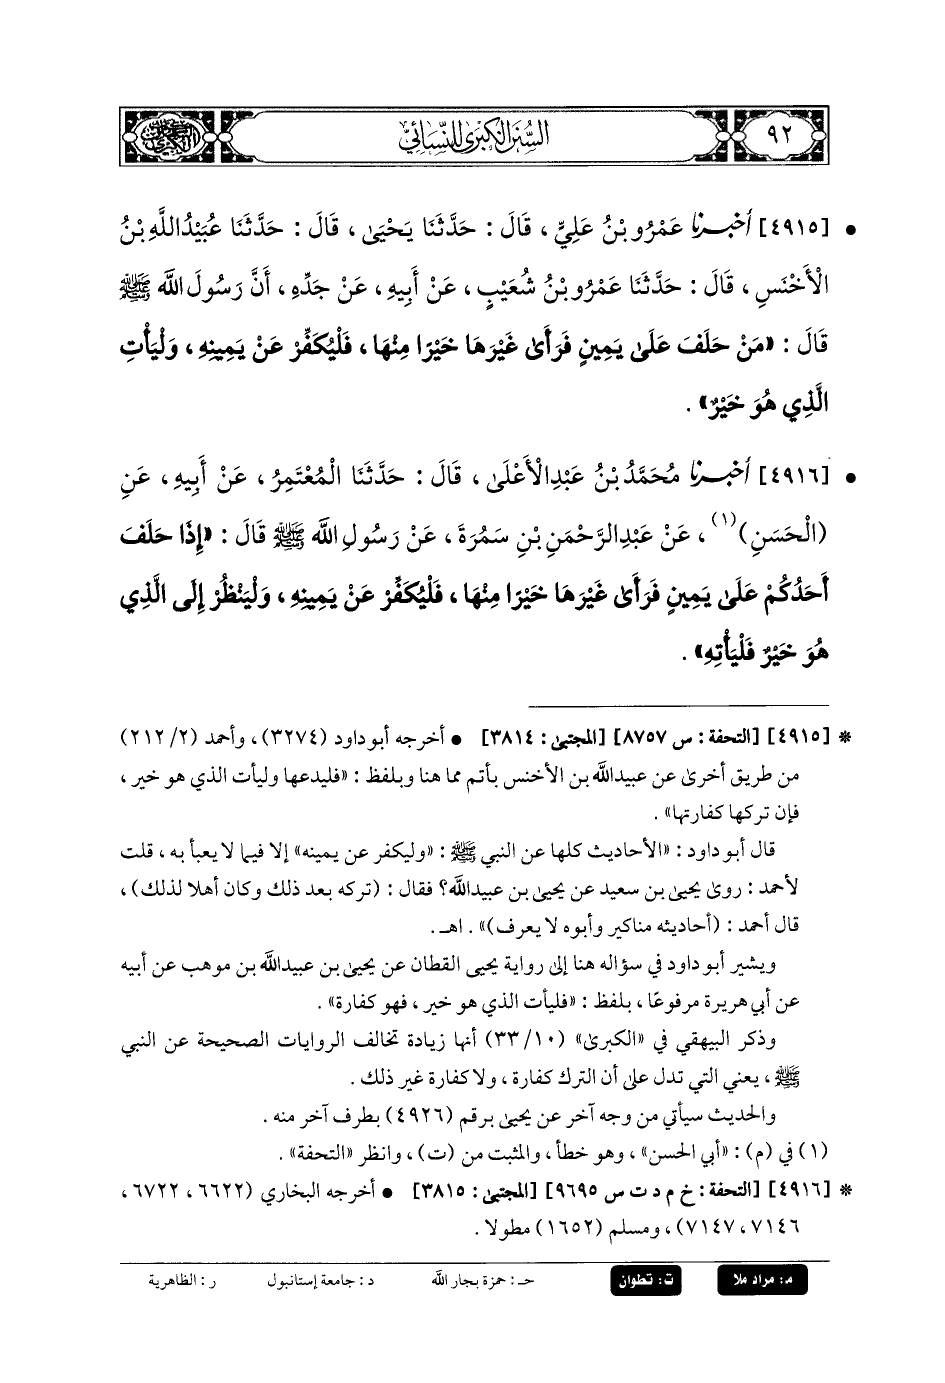 ٩٢
السنن الكبرى للنسائي
• [٤٩١٥] أَخْبَرَنَا عَمْرُو بْنُ عَلِيٍّ، قَالَ: حَدَّثَنَا يَحْيَىٰ، قَالَ: حَدَّثَنَا عُبَيْدُاللَّهِ بْنُ
الْأَخْنَسِ، قَالَ: حَدَّثَنَا عَمْرُو بْنُ شُعَيْبٍ، عَنْ أَبِيهِ، عَنْ جَدِّهِ، أَنَّ رَسُولَ اللَّه ﷺ
قَالَ: «مَنْ حَلَفَ عَلَىٰ يَمِينٍ فَرَأَىٰ غَيْرَهَا خَيْرًا مِنْهَا، فَلْيُكَفِّرْ عَنْ يَمِينِهِ، وَلْيَأْتِ
الَّذِي هُوَ خَيْرٌ».
• [٤٩١٦] أَخْبَرَنَا مُحَمَّدُ بْنُ عَبْدِالْأَعْلَىٰ، قَالَ: حَدَّثَنَا الْمُعْتَمِرُ، عَنْ أَبِيهِ، عَنِ
(الْحَسَنِ)(١)، عَنْ عَبْدِالرَّحْمَنِ بْنِ سَمُرَةَ، عَنْ رَسُولِ اللَّه ﷺ قَالَ: «إِذَا حَلَفَ
أَحَدُكُمْ عَلَىٰ يَمِينٍ فَرَأَىٰ غَيْرَهَا خَيْرًا مِنْهَا، فَلْيُكَفِّرْ عَنْ يَمِينِهِ، وَلْيَنْظُرْ إِلَى الَّذِي
هُوَ خَيْرٌ فَلْيَأْتِهِ».
* [٤٩١٥] [التحفة: س ٨٧٥٧] [المجتبىٰ: ٣٨١٤] • أخرجه أبو داود (٣٢٧٤)، وأحمد (٢/ ٢١٢)
من طريق أخرىٰ عن عبيداللَّه بن الأخنس بأتم مما هنا وبلفظ: «فليدعها وليأت الذي هو خير،
فإن تركها كفارتها».
قال أبو داود: «الأحاديث كلها عن النبي ﷺ: «وليكفر عن يمينه» إلا فيما لا يعبأ به، قلت
لأحمد: روىٰ يحيىٰ بن سعيد عن يحيىٰ بن عبيداللَّه؟ فقال: (تركه بعد ذلك وكان أهلا لذلك)،
قال أحمد: (أحاديثه مناكير وأبوه لا يعرف)». اهـ.
ويشير أبو داود في سؤاله هنا إلىٰ رواية يحيى القطان عن يحيىٰ بن عبيداللَّه بن موهب عن أبيه
عن أبي هريرة مرفوعًا، بلفظ: «فليأت الذي هو خير، فهو كفارة».
وذكر البيهقي في «الكبرىٰ» (١٠/ ٣٣) أنها زيادة تخالف الروايات الصحيحة عن النبي
ﷺ، يعني التي تدل علىٰ أن الترك كفارة، ولا كفارة غير ذلك.
والحديث سيأتي من وجه آخر عن يحيىٰ برقم (٤٩٢٦) بطرف آخر منه.
(١) في (م): «أبي الحسن»، وهو خطأ، والمثبت من (ت)، وانظر «التحفة».
* [٤٩١٦] [التحفة: خ م د ت س ٩٦٩٥] [المجتبىٰ: ٣٨١٥] • أخرجه البخاري (٦٦٢٢، ٦٧٢٢،
٧١٤٦، ٧١٤٧)، ومسلم (١٦٥٢) مطولا.
م: مراد ملا ت: تطوان حـ: حمزة بجار اللَّه د: جامعة إستانبول ر: الظاهرية